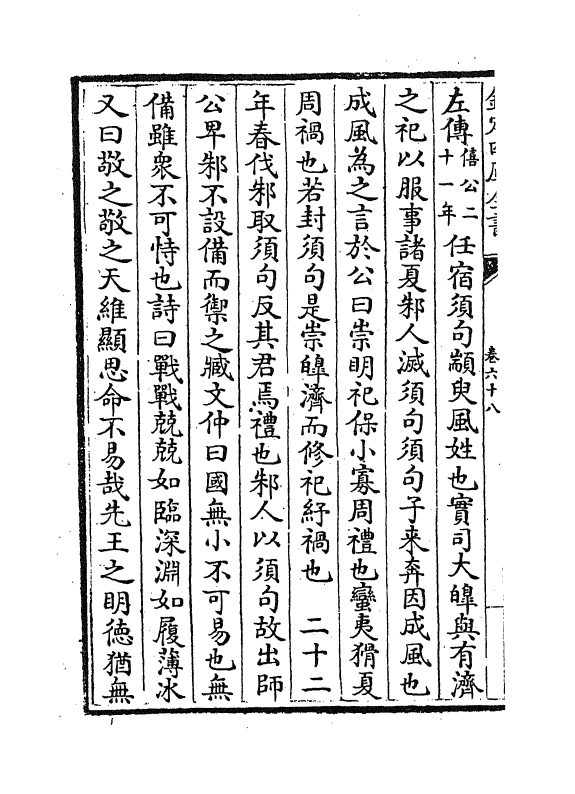 欽定四庫全書
卷六十八
左傳僖公二十一年任宿須句顓臾風姓也實司大皥與有濟
之祀以服事諸夏邾人滅須句須句子来奔因成風也
成風為之言於公曰崇明祀保小寡周禮也蠻夷猾夏
周禍也若封須句是崇皥濟而修祀紓禍也 二十二
年春伐邾取須句反其君焉禮也邾人以須句故出師
公卑邾不設備而禦之臧文仲曰國無小不可易也無
備雖衆不可恃也詩曰戰戰兢兢如臨深淵如履薄冰
又曰敬之敬之天維顯思命不易哉先王之明德猶無